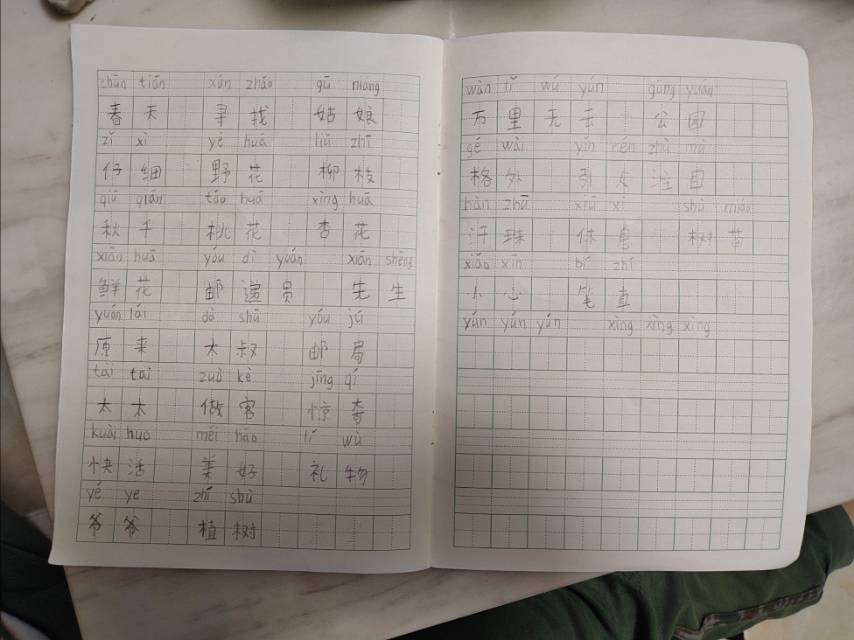 chūn tiān xún zhǎo gū niang
春天 寻找 姑娘
zǐ xì yě huā liǔ zhī
仔细 野花 柳枝
qiū qiān táo huā xìng huā
秋千 桃花 杏花
xiān huā yóu dì yuán xiān shēng
鲜花 邮递员 先生
yuán lái dà shū yóu jú
原来 大叔 邮局
tài tai zuò kè jīng qí
太太 做客 惊奇
kuài huo měi hǎo lǐ wù
快活 美好 礼物
yé ye zhí shù
爷爷 植树
wàn lǐ wú yún gōng yuán
万里无云 公园
gé wài yǐn rén zhù mù
格外 引人注目
hàn zhū xiū xi shù miáo
汗珠 休息 树苗
xiǎo xīn bǐ zhí
小心 笔直
yún yún yún xìng xìng xìng